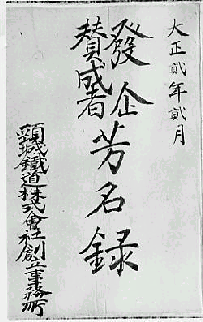 大正貳年貳月
發企
賛成者
芳名録
頸城鐵道株式會社創立事務所